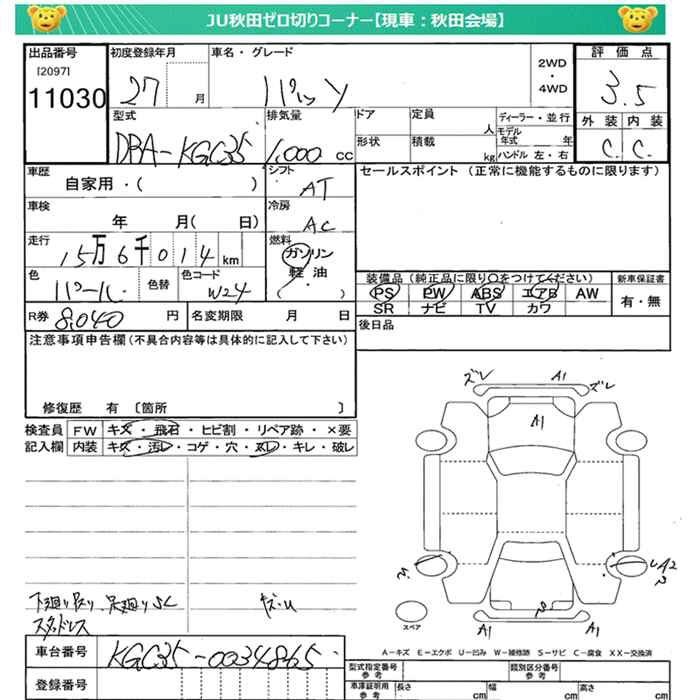 JU秋田ゼロ切りコーナー【現車：秋田会場】
出品番号 初度登録年月 車名・グレード 2WD・4WD 評価点
[2097]
11030 27 月 パッソ 3.5
外装 内装
C. C.
型式 DBA-KGC35 排気量 1,000 cc
ドア 定員 人 ディーラー・並行
形状 積載 kg モデル年式 年 ハンドル 左・右
車歴 自家用・( )
シフト AT
セールスポイント（正常に機能するものに限ります）
車検 年 月( 日)
冷房 AC
走行 15万6千014km
燃料 ガソリン 軽油 ( ・ )
色 パール 色替 色コード W24
装備品（純正品に限り○をつけてください） 新車保証書
PS PW ABS エアB AW 有・無
SR ナビ TV カワ
R券 8,040 円 名変期限 月 日
後日品
注意事項申告欄(不具合内容等は具体的に記入して下さい)
修復歴 有 〔箇所 〕
検査員 FW キズ・飛石・ヒビ割・リペア跡・×要
記入欄 内装 キズ・汚レ・コゲ・穴・スレ・キレ・破レ
ズレ A1 ズレ
A1
A2
スタッドレス
スペア A1 A1
A-キズ E-エクボ U-凹み W-補修跡 S-サビ C-腐食 XX-交換済
車台番号 KGC35-0034865
登録番号
型式指定番号 参考 類別区分番号 参考
車庫証明用 参考 長さ cm 幅 cm 高さ cm